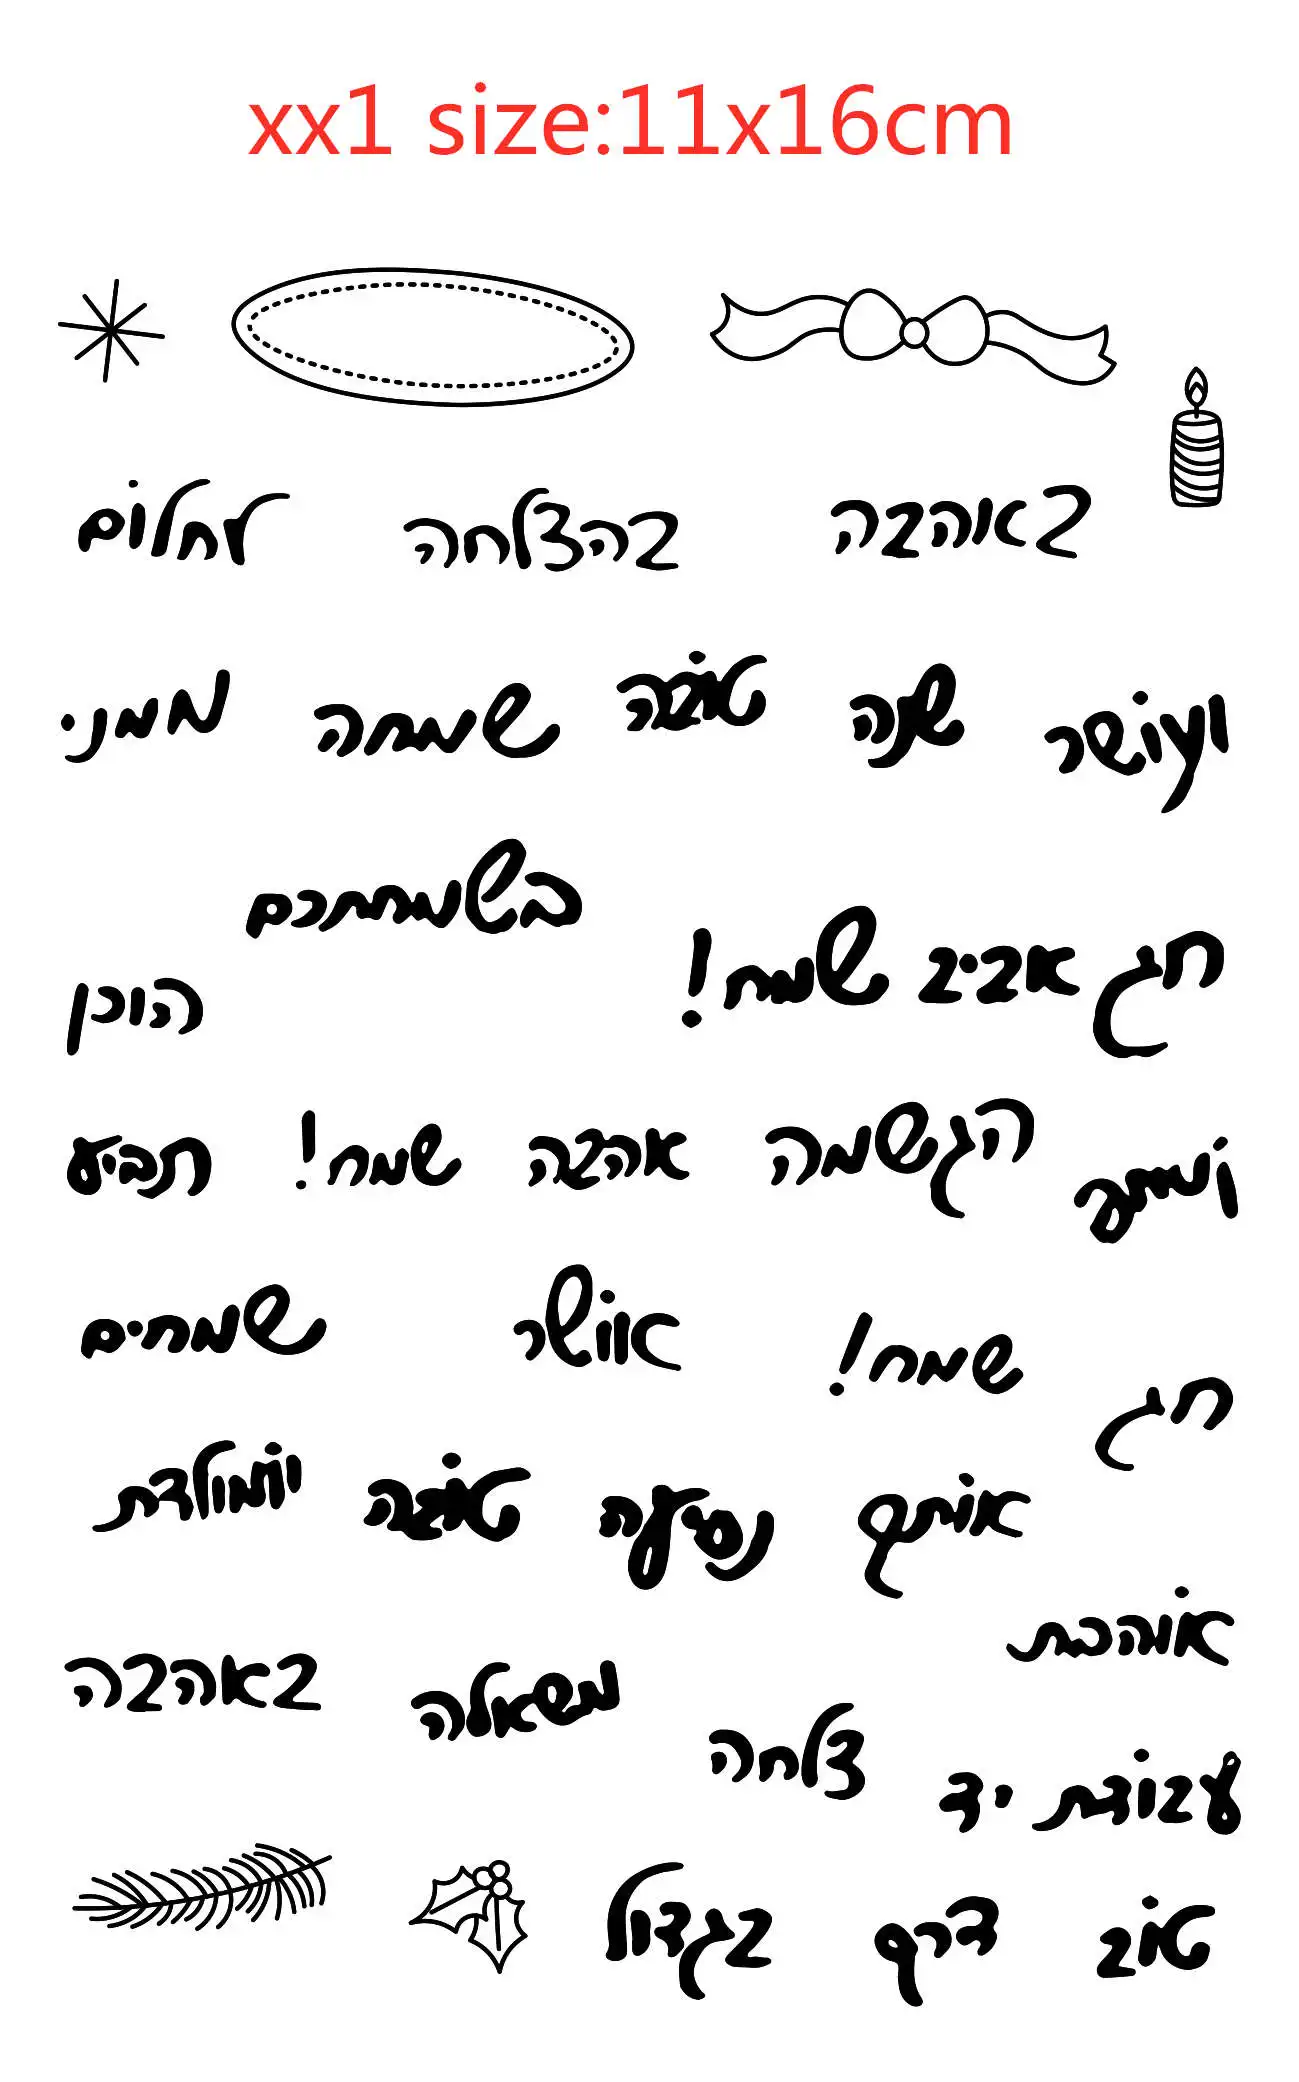 xx1 size:11x16cm
באהבה בהצלחה לחלום
ועושר שנה טובה שמחה ממני
בשמחתכם
חג אביב שמח!
הוכן
הגשמה אהבה שמח! תביע
אושר שמחים
חג שמח!
אותך נסיעה טובה יומולדת
אוהבת
באהבה משאלה
עבודת יד צלחה
טוב דרך בגדול